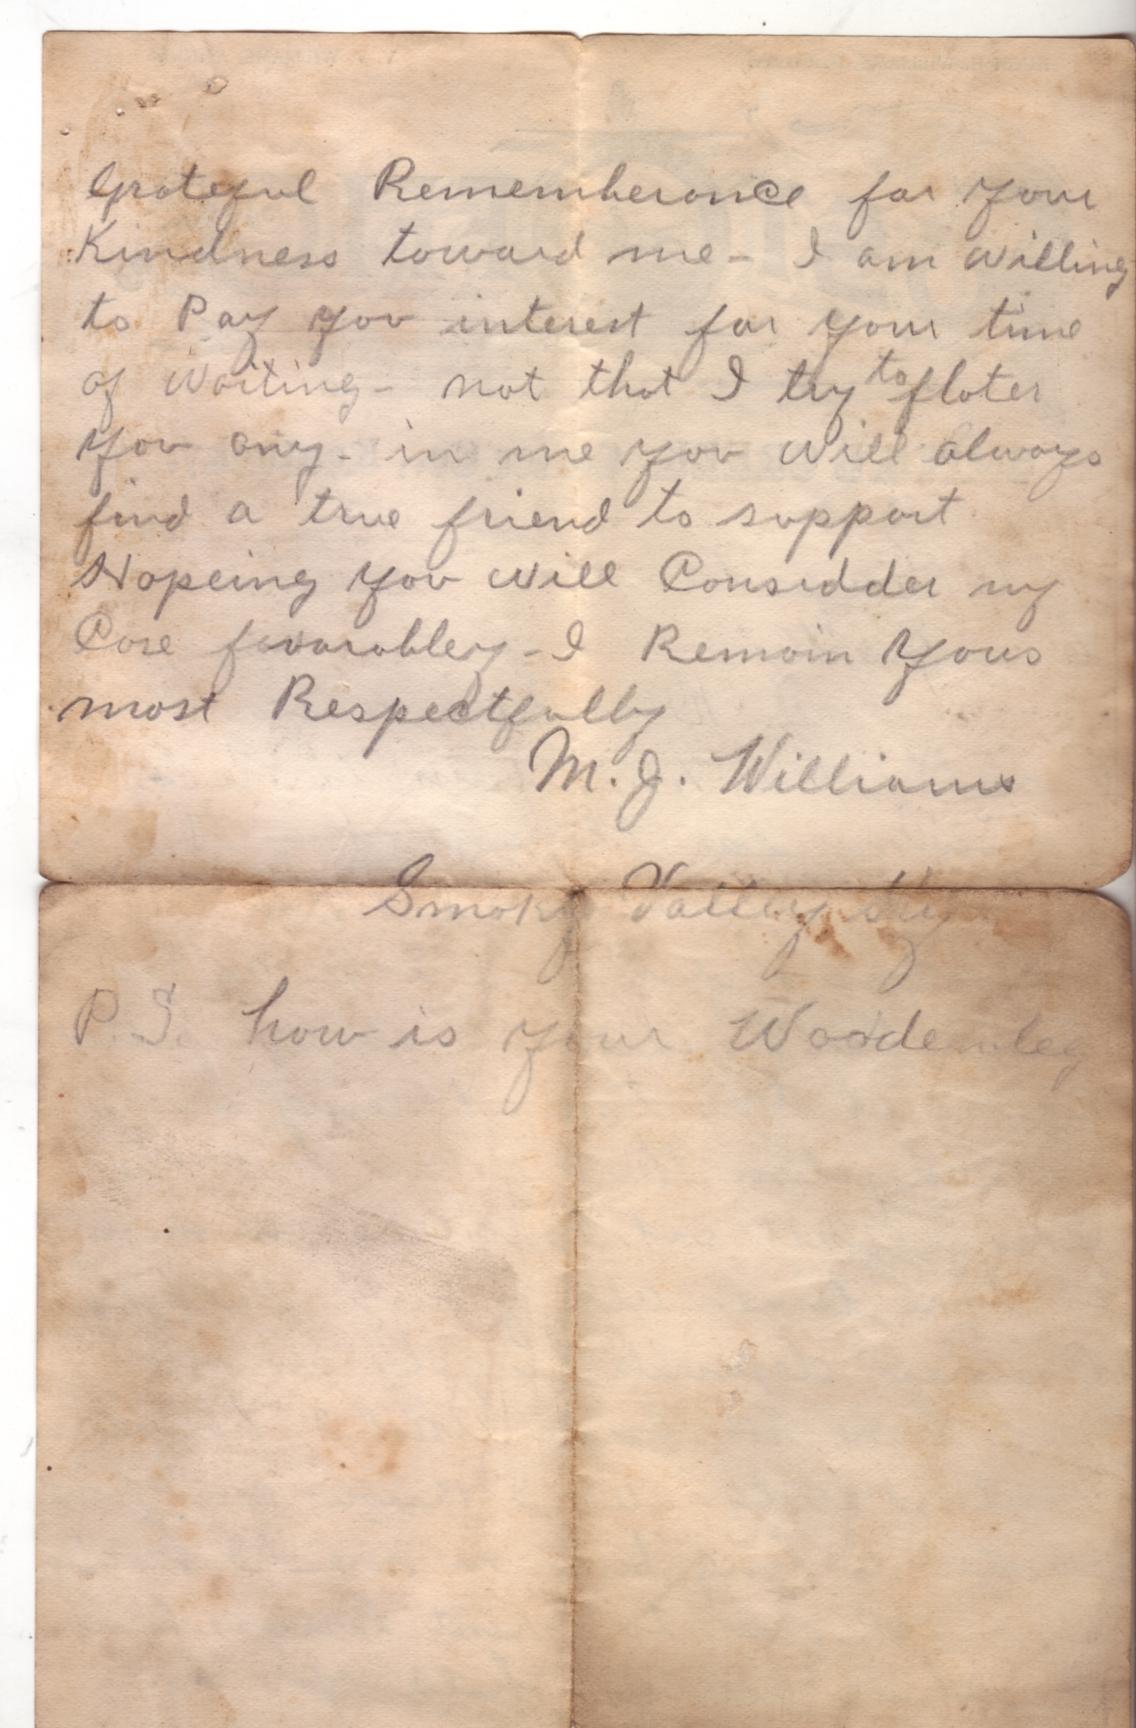 Grateful Rememberance for your
Kindness toward me - I am willing
to Pay you interest for your time
of Waiting - not that I try to flater
you any - in me you will always
find a true friend to support
Hopeing you will Considder my
Case favorabley - I Remain Yous
most Respectfully
M. J. Williams
Smoky Valley Ky
P.S. how is your Woodenleg